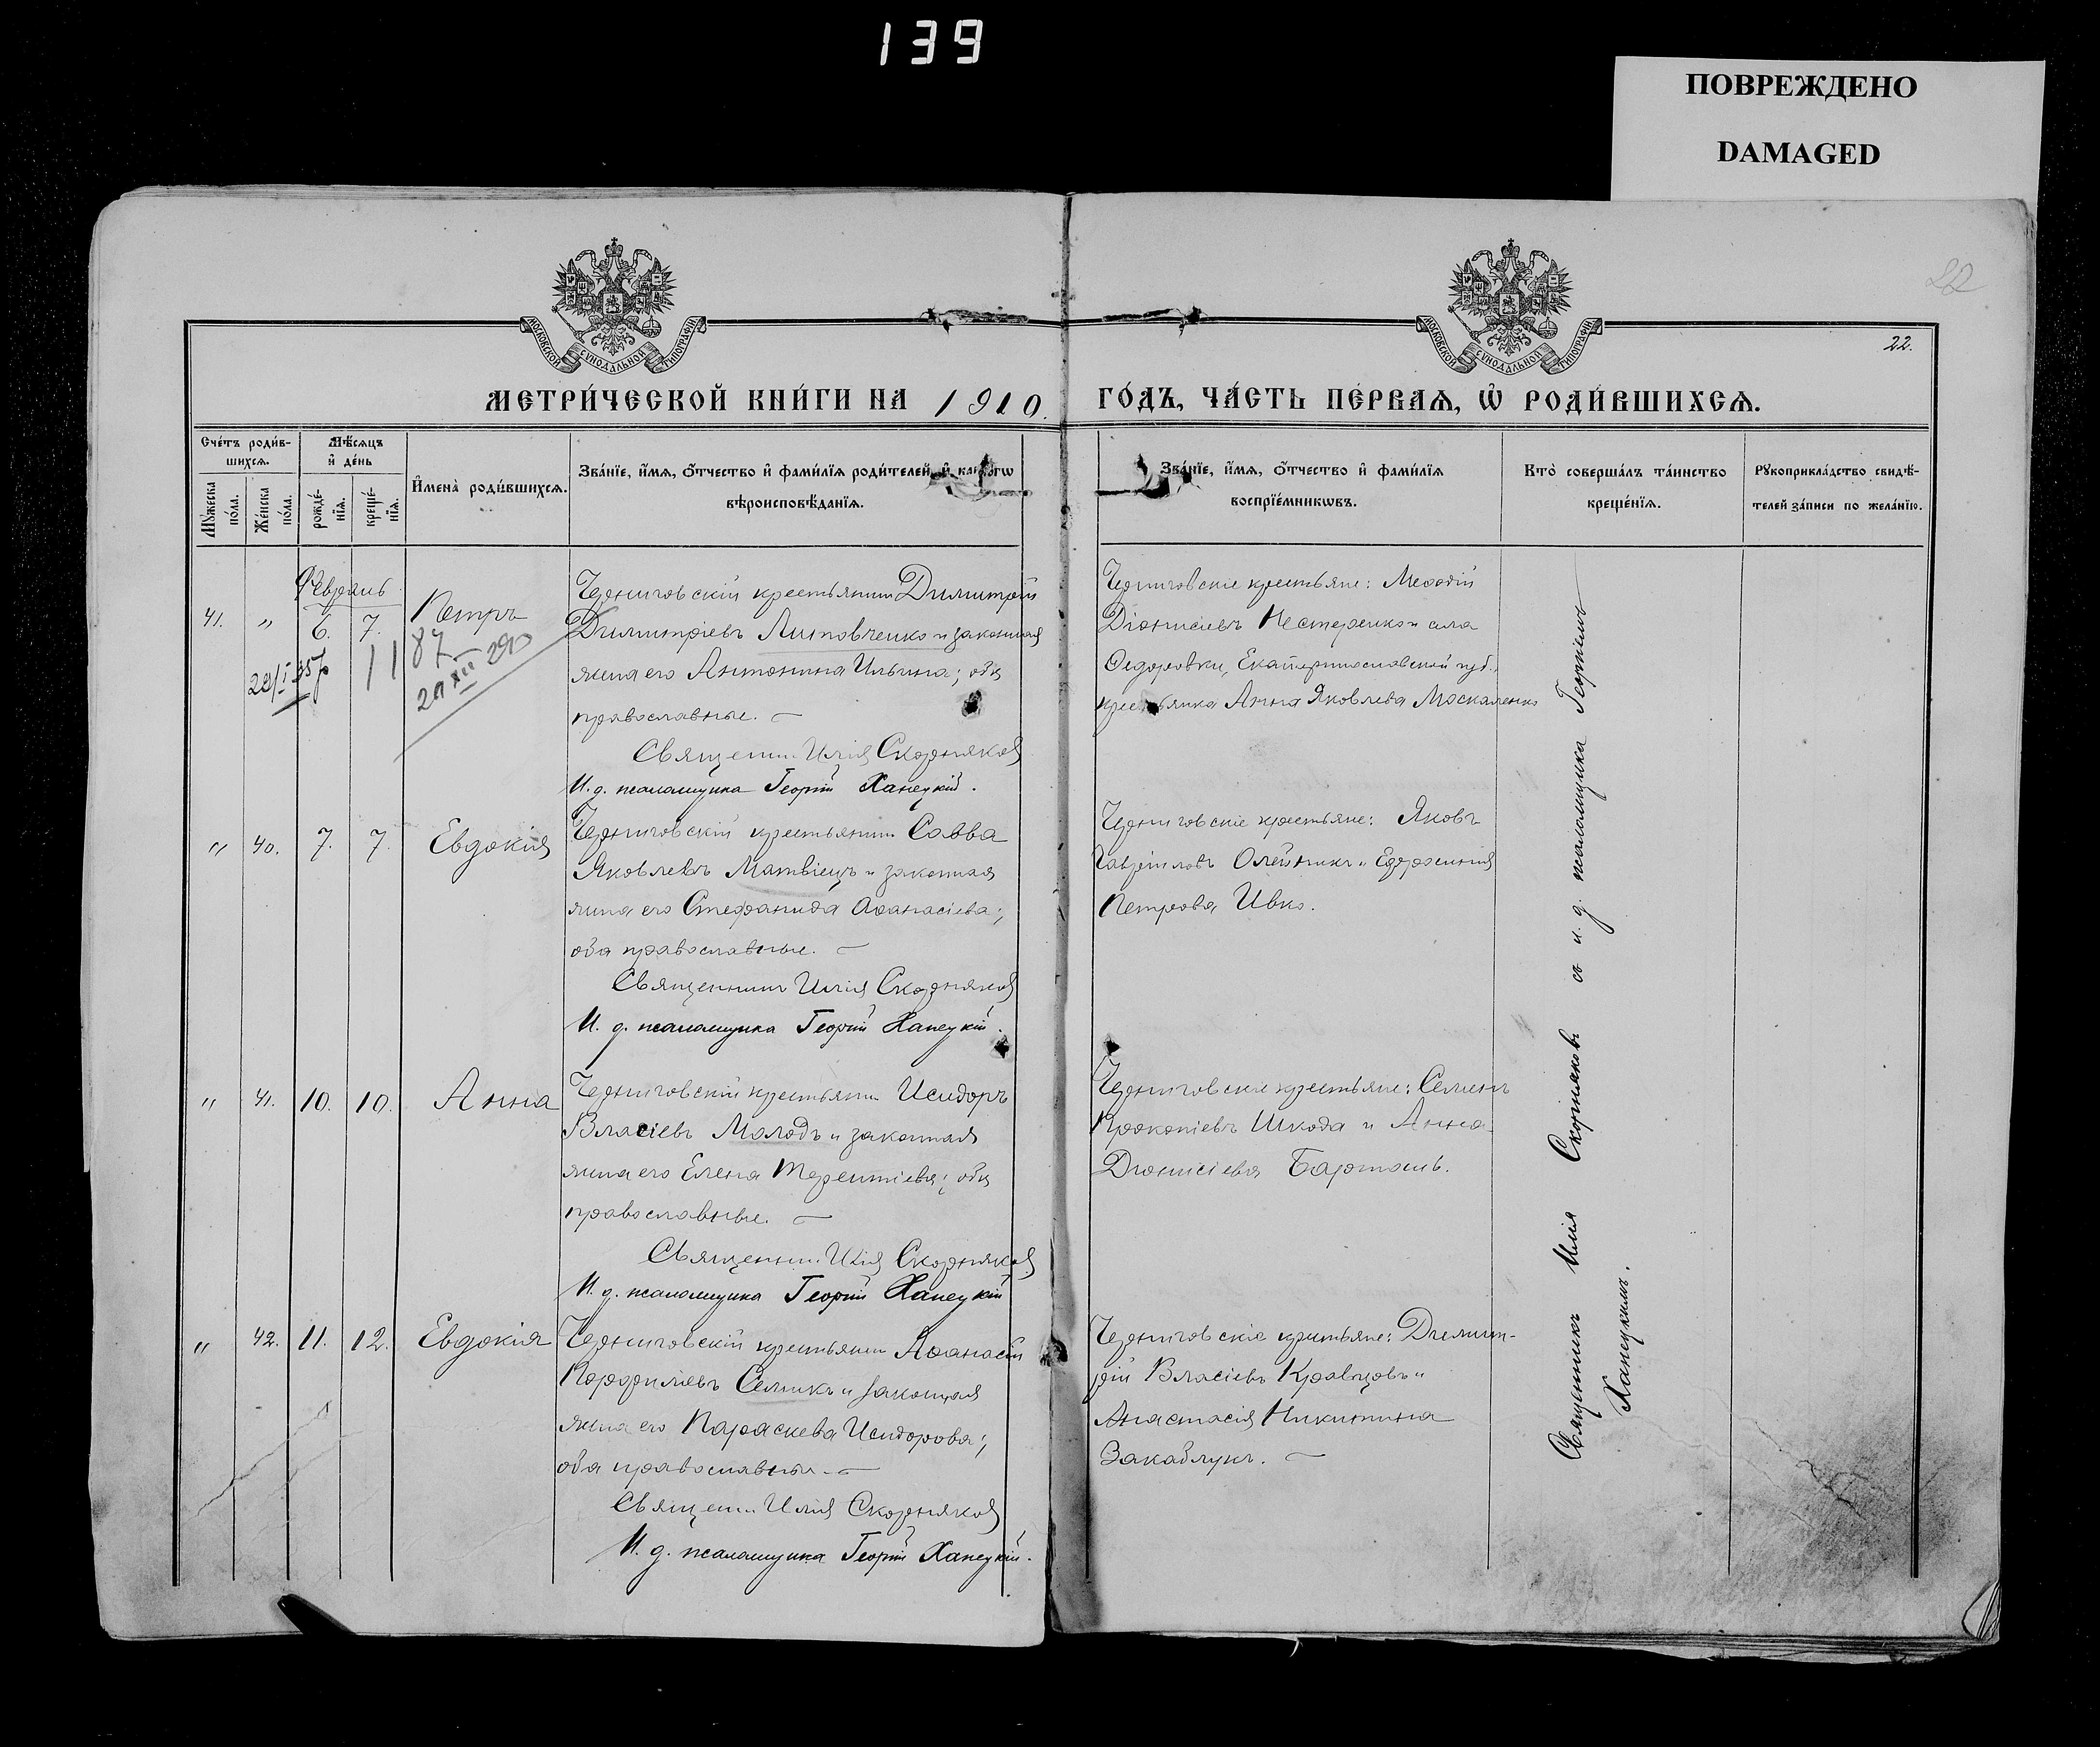 139
ПОВРЕЖДЕНО
DAMAGED
МОСКОВСКОЙ СУНОДАЛЬНОЙ ТИПОГРАФІИ
МОСКОВСКОЙ СУНОДАЛЬНОЙ ТИПОГРАФІИ
22
22.
МЕТРИ́ЧЕСКОЙ КНИ́ГИ НА 1910. ГО́ДЪ, ЧА́СТЬ ПЕ́РВАѦ, Ѡ҆ РОДИ́ВШИХСѦ.
Сче́тъ роди́в-
шихсѧ.
Мꙋ́жеска по́ла.
Же́нска по́ла.
Мѣ́сѧцъ
и҆ де́нь
рожде́-
нїѧ.
креще́-
нїѧ.
И҆мена̀ роди́вшихсѧ.
Зва́нїе, и҆́мѧ, ѻ҆́тчество и҆ фами́лїѧ роди́телей, и҆ како́гѡ
вѣроисповѣ́данїѧ.
Зва́нїе, и҆́мѧ, ѻ҆́тчество и҆ фами́лїѧ
воспрїе́мникѡвъ.
Кто̀ соверша́лъ та́инство
креще́нїѧ.
Рꙋкоприкла́дство свидѣ́-
телей за́писи по жела́нїю.
Февраль
41. " 6. 7. Петръ
1187
Черниговскій крестьянинъ Димитрій
Димитріевъ Литовченко и законная
жена его Антонина Ильина; оба
православные.
Священн. Илія Скорняковъ
И. д. псаломщика Георгій Ханецкій.
Черниговскіе крестьяне: Меѳодій
Діонисіевъ Нестеренко и села
Ѳедоровки, Екатеринославской губ.,
крестьянка Анна Яковлева Москаленко
" 40. 7. 7. Евдокія
Черниговскій крестьянинъ Савва
Яковлевъ Матвіецъ и законная
жена его Стефанида Аѳанасіева;
оба православные.
Священникъ Илія Скорняковъ
И. д. псаломщика Георгій Ханецкій.
Черниговскіе крестьяне: Яковъ
Гавріиловъ Олейникъ и Евфросинія
Петрова Ивко.
" 41. 10. 10. Анна
Черниговскій крестьянинъ Исидоръ
Власіевъ Молодъ и законная
жена его Елена Терентіева; оба
православные.
Священн. Илія Скорняковъ
И. д. псаломщика Георгій Ханецкій
Черниговскіе крестьяне: Семенъ
Прокопіевъ Шкода и Анна
Діонисіева Бартошъ.
" 42. 11. 12. Евдокія
Черниговскій крестьянинъ Аѳанасій
Порфиліевъ Семикъ и законная
жена его Параскева Исидорова;
оба православны
Священн. Илія Скорняковъ
И. д. псаломщика Георгій Ханецкій.
Черниговскіе крестьяне: Димит-
рій Власіевъ Кравцовъ и
Анастасія Никитина
Закаблукъ.
Священникъ Илія Скорняковъ съ и. д. псаломщика Георгіемъ
Ханецкимъ.